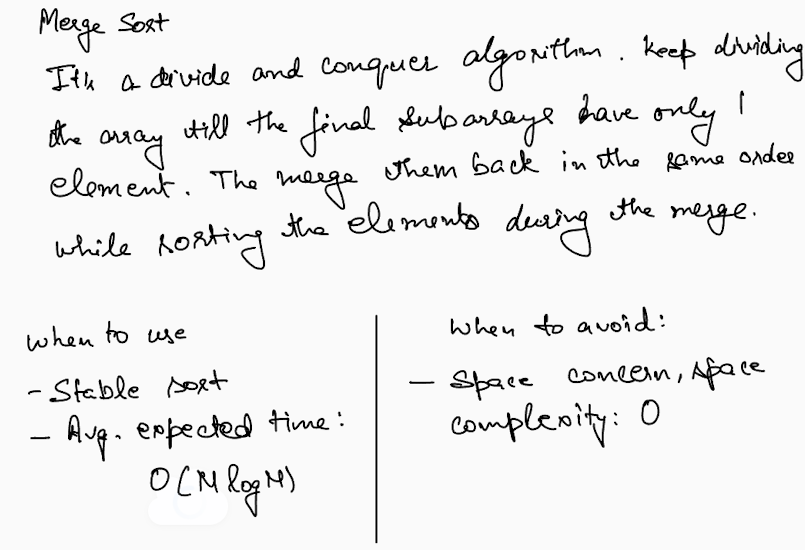 Merge Sort
It's a divide and conquer algorithm. keep dividing
the array till the final subarrays have only 1
element. The merge them back in the same order
while sorting the elements during the merge.
when to use
- Stable sort
- Avg. expected time:
O(N log N)
when to avoid:
- Space concern, space
complexity: O